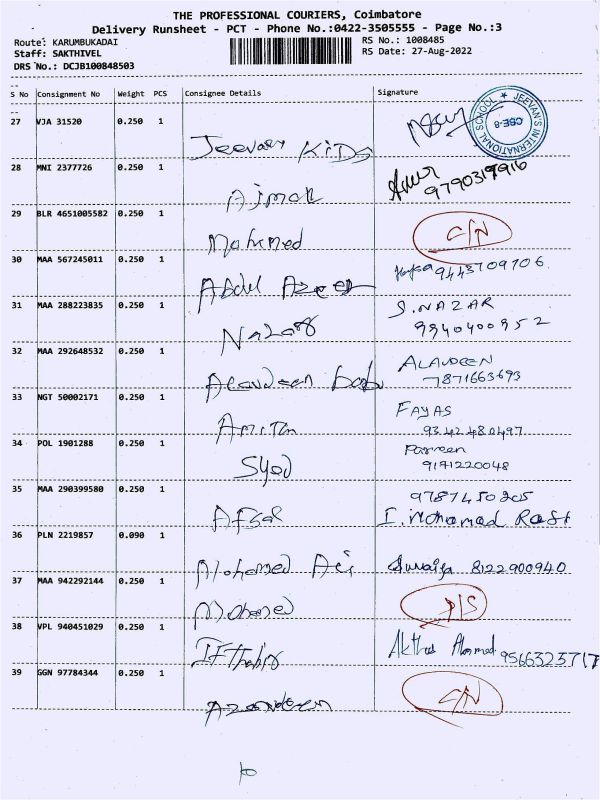 THE PROFESSIONAL COURIERS, Coimbatore
Delivery Runsheet - PCT - Phone No.:0422-3505555 - Page No.:3
Route: KARUMBUKADAI RS No.: 1008485
Staff: SAKTHIVEL RS Date: 27-Aug-2022
DRS No.: DCJB100848503
S No Consignment No Weight PCS Consignee Details Signature
JEEVAN'S INTERNATIONAL SCHOOL ★ CBE-8
27 VJA 31520 0.250 1
Jeevan Kids
28 MNI 2377726 0.250 1
Ajmal 9790319916
29 BLR 4651005582 0.250 1
Mohamed C/N
30 MAA 567245011 0.250 1 9443709706
Abdul Azeez
31 MAA 288223835 0.250 1 S.NAZAR
Nazar 9940400952
32 MAA 292648532 0.250 1 ALAUDEEN
Alaudeen babu 7871663693
33 NGT 50002171 0.250 1 FAYAS
9342480497
34 POL 1901288 0.250 1 Parveen
Syed 9171220048
35 MAA 290399580 0.250 1 9787450205
Afsal I. Mohamed
36 PLN 2219857 0.090 1
Mohamed Ali 8122900940
37 MAA 942292144 0.250 1
Mohamed
38 VPL 940451029 0.250 1 Ahamed 9566323717
39 GGN 97784344 0.250 1 C/N